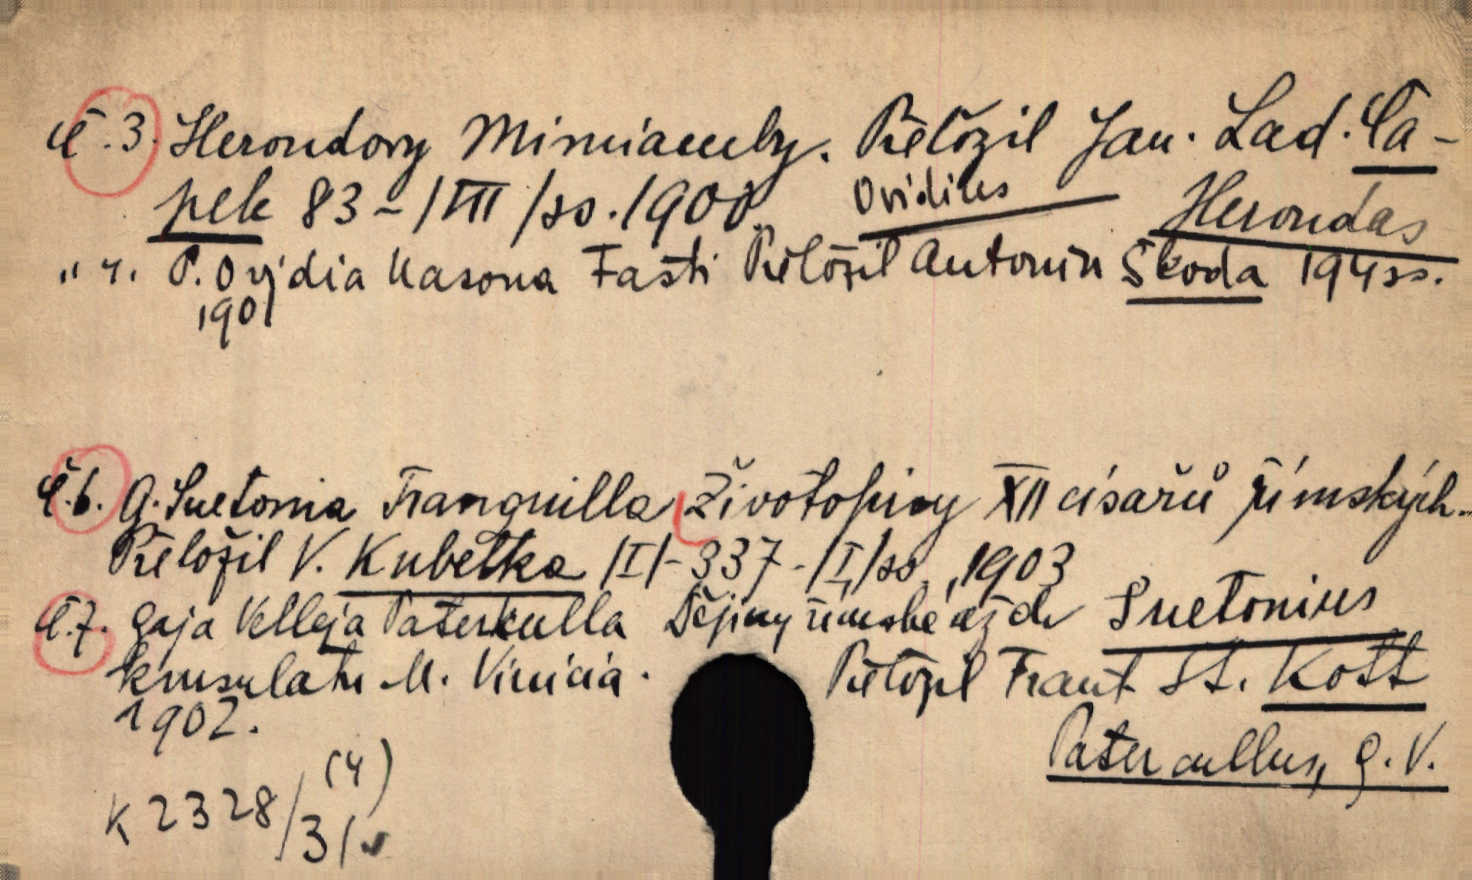 Č. 3. Herondovy Mimiamby. Přeložil Jan. Lad. Ča-
pek 83 - /VII/ ss. 1900. Ovidius Herondas
" 4. P. Ovidia Nasona Fasti Přeložil Antonín Škoda 194 ss.
1901
Č. 6. G. Suetonia Tranquilla Životopisy XII císařů římských.
Přeložil V. Kubelka /II/ - 337 - /I,/ ss., 1903
Č. 7. Gaja Velleja Paterkulla Dějiny římské až do Suetonius
konsulatu M. Vinicia. Přeložil Frant. St. Kott
1902.
Paterculus, G. V.
K 2328/3/v (4)